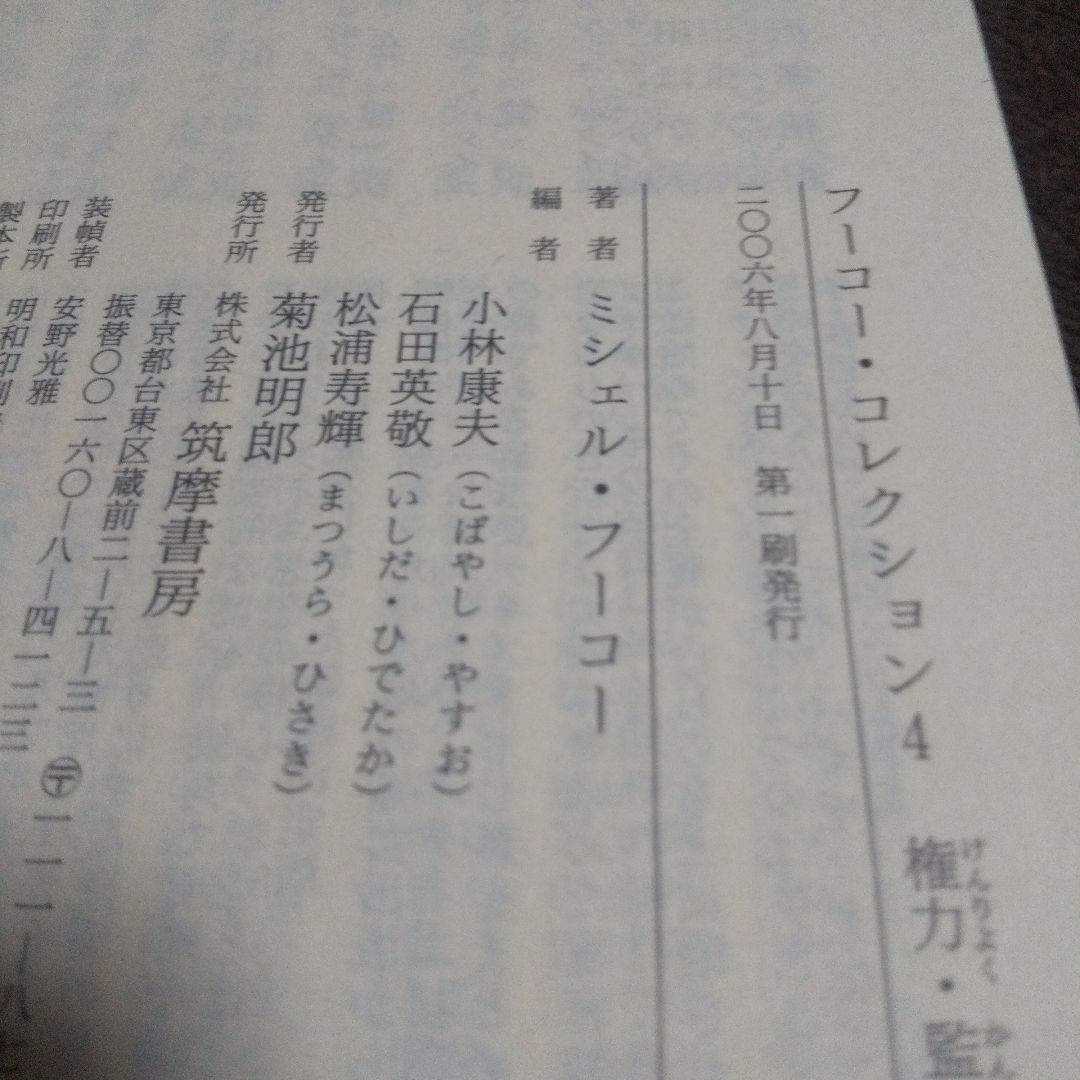 フーコー・コレクション4 権力・監
けんりょく かん
二〇〇六年八月十日 第一刷発行
著者 ミシェル・フーコー
編者 小林康夫（こばやし・やすお）
石田英敬（いしだ・ひでたか）
松浦寿輝（まつうら・ひさき）
発行者 菊池明郎
発行所 株式会社 筑摩書房
東京都台東区蔵前二―五―三 〒一一一―八
振替〇〇一六〇―八―四一二三
装幀者 安野光雅
印刷所 明和印刷
製本所